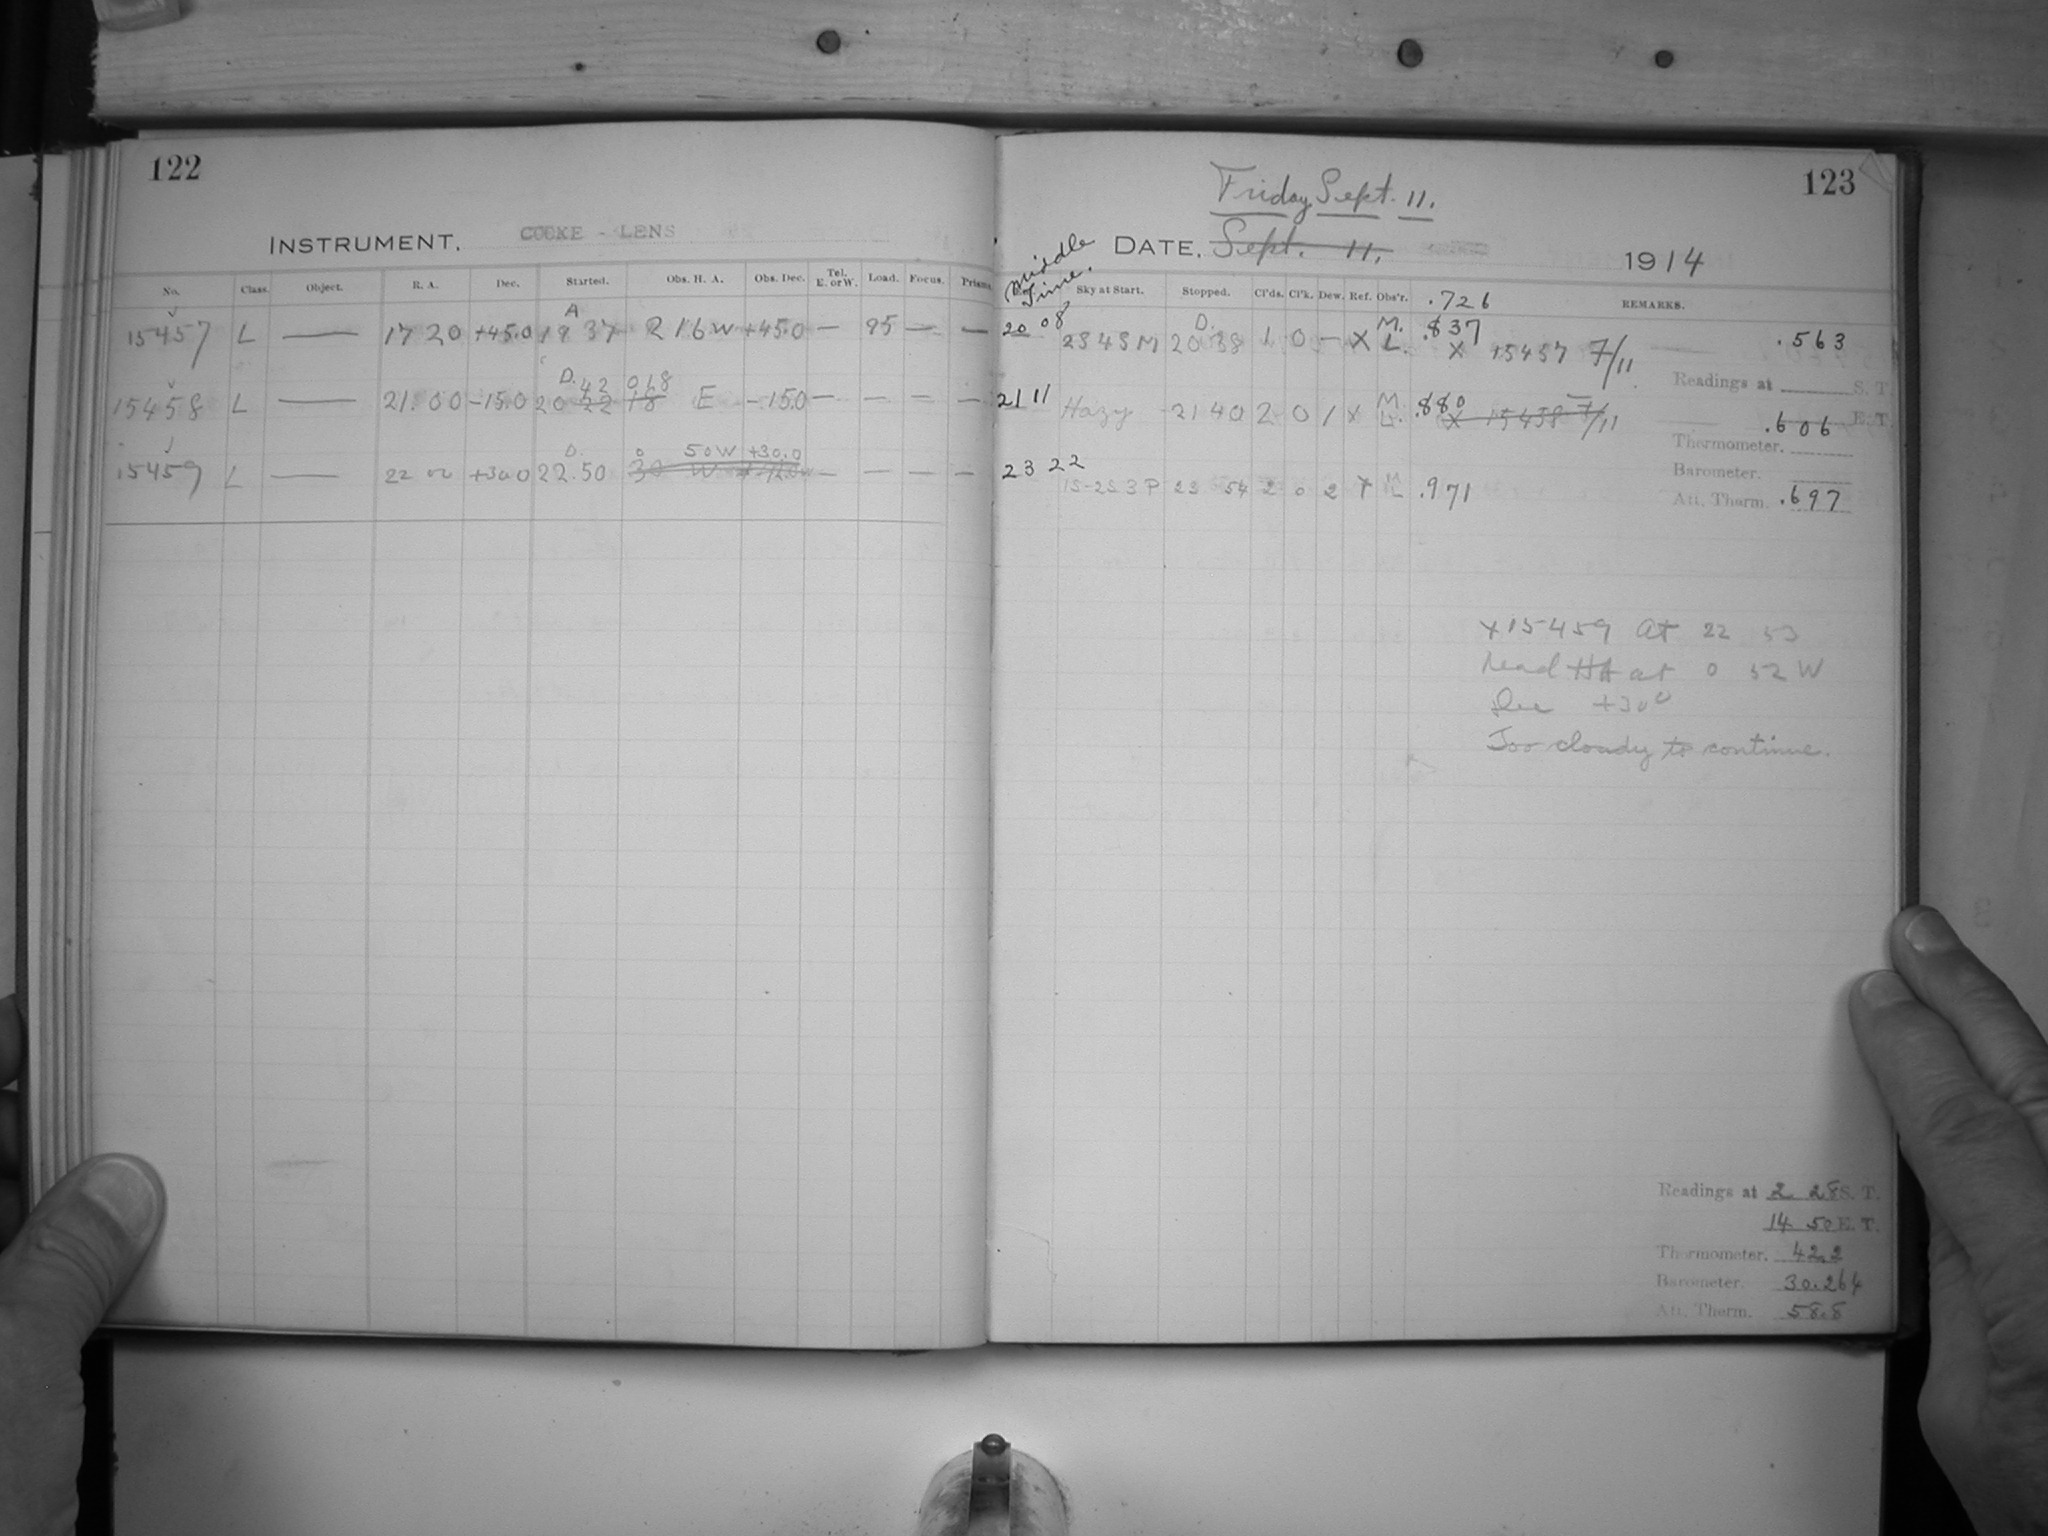 122
INSTRUMENT. COOKE - LENS
No. Class. Object. R. A. Dec. Started. Obs. H. A. Obs. Dec. Tel. E. or W. Load. Focus. Prisms
A
15457 L — 17 20 +45.0 19 37 2 16 W +45.0 — 95 — —
D. 42 0 18
15458 L — 21.00 -15.0 20 22 18 E -15.0 — — — —
D. 0 50W +30.0
15459 L — 22 00 +30.0 22.50 30 W — — — —
123
Friday Sept. 11.
DATE. Sept. 11. 1914
Middle Time.
Sky at Start. Stopped. Cl'ds. Cl'k. Dew. Ref. Obs'r. .726 REMARKS.
20 08 2S 4S M D. 20 38 1 0 — X M. L. .837 X 15457 7/11 .563
Readings at S. T.
21 11 Hazy 21 40 2 0 1 x M L. .880 X 15458 7/11 .606 E. T.
Thermometer.
Barometer.
23 22 1S-2S 3 P 23 54 2 0 2 x M L .971
Att. Therm. .697
X15459 At 22 53
Read HA at 0 52 W
Dec +30°
Too cloudy to continue.
Readings at 2 28 S. T.
14 50 E. T.
Thermometer. 42.2
Barometer. 30.264
Att. Therm. 58.8